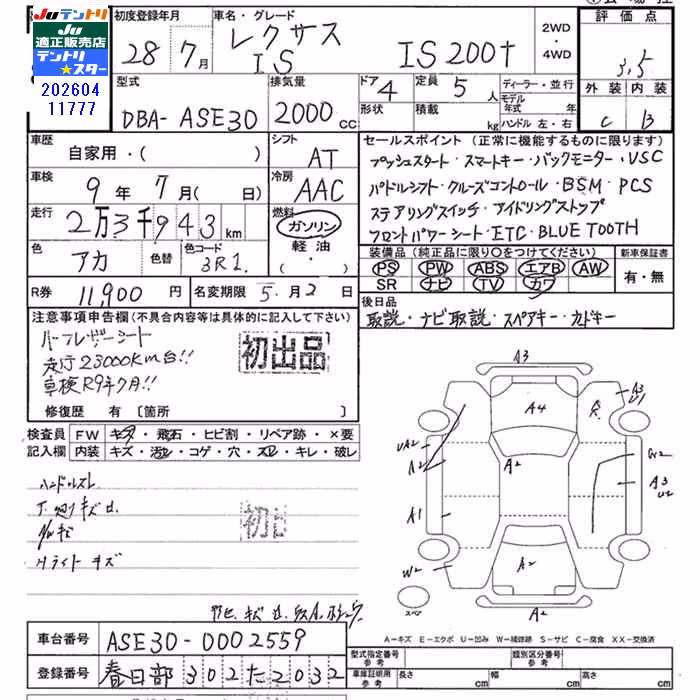 Juテントリ
Ju
適正販売店
テントリ
スター
202604
11777
初度登録年月
28年7月
車名・グレード
レクサス
IS
IS200t
2WD
・
4WD
評価点
3.5
外装 内装
C B
型式
DBA- ASE30
排気量
2000cc
ドア 4
形状
定員 5人
積載 kg
ディーラー・並行
モデル
年式 年
ハンドル 左・右
車歴
自家用・( )
シフト
AT
車検
9年7月( 日)
冷房
AAC
走行
2万3千943km
燃料
ガソリン
軽油
・( )
色
アカ
色替
色コード
3R1
R券 11,900円
名変期限 5月2日
セールスポイント(正常に機能するものに限ります)
プッシュスタート・スマートキー・バックモニター・VSC
パドルシフト・クルーズコントロール・BSM・PCS
ステアリングスイッチ・アイドリングストップ
フロントパワーシート・ETC・BLUETOOTH
装備品(純正品に限り○をつけてください)
PS PW ABS エアB AW
SR ナビ TV カワ
新車保証書
有・無
後日品
取説・ナビ取説・スペアキー・カードキー
注意事項申告欄(不具合内容等は具体的に記入して下さい)
ハーフレザーシート
走行23000Km台!!
車検R9年7月!!
初出品
修復歴 有〔箇所 〕
検査員
記入欄
FW キズ・飛石・ヒビ割・リペア跡・×要
内装 キズ・汚レ・コゲ・穴・スレ・キレ・破レ
ハンドルスレ
Hライトキズ
A3
A4
A3
U1
UA2
A2
A2
A3
U2
A1
W2
A2
A2
スペア
A-キズ E-エクボ U-凹み W-補修跡 S-サビ C-腐食 XX-交換済
車台番号 ASE30-0002559
登録番号 春日部302た2032
型式指定番号
参考
類別区分番号
参考
車庫証明用
参考
長さ cm
幅 cm
高さ cm